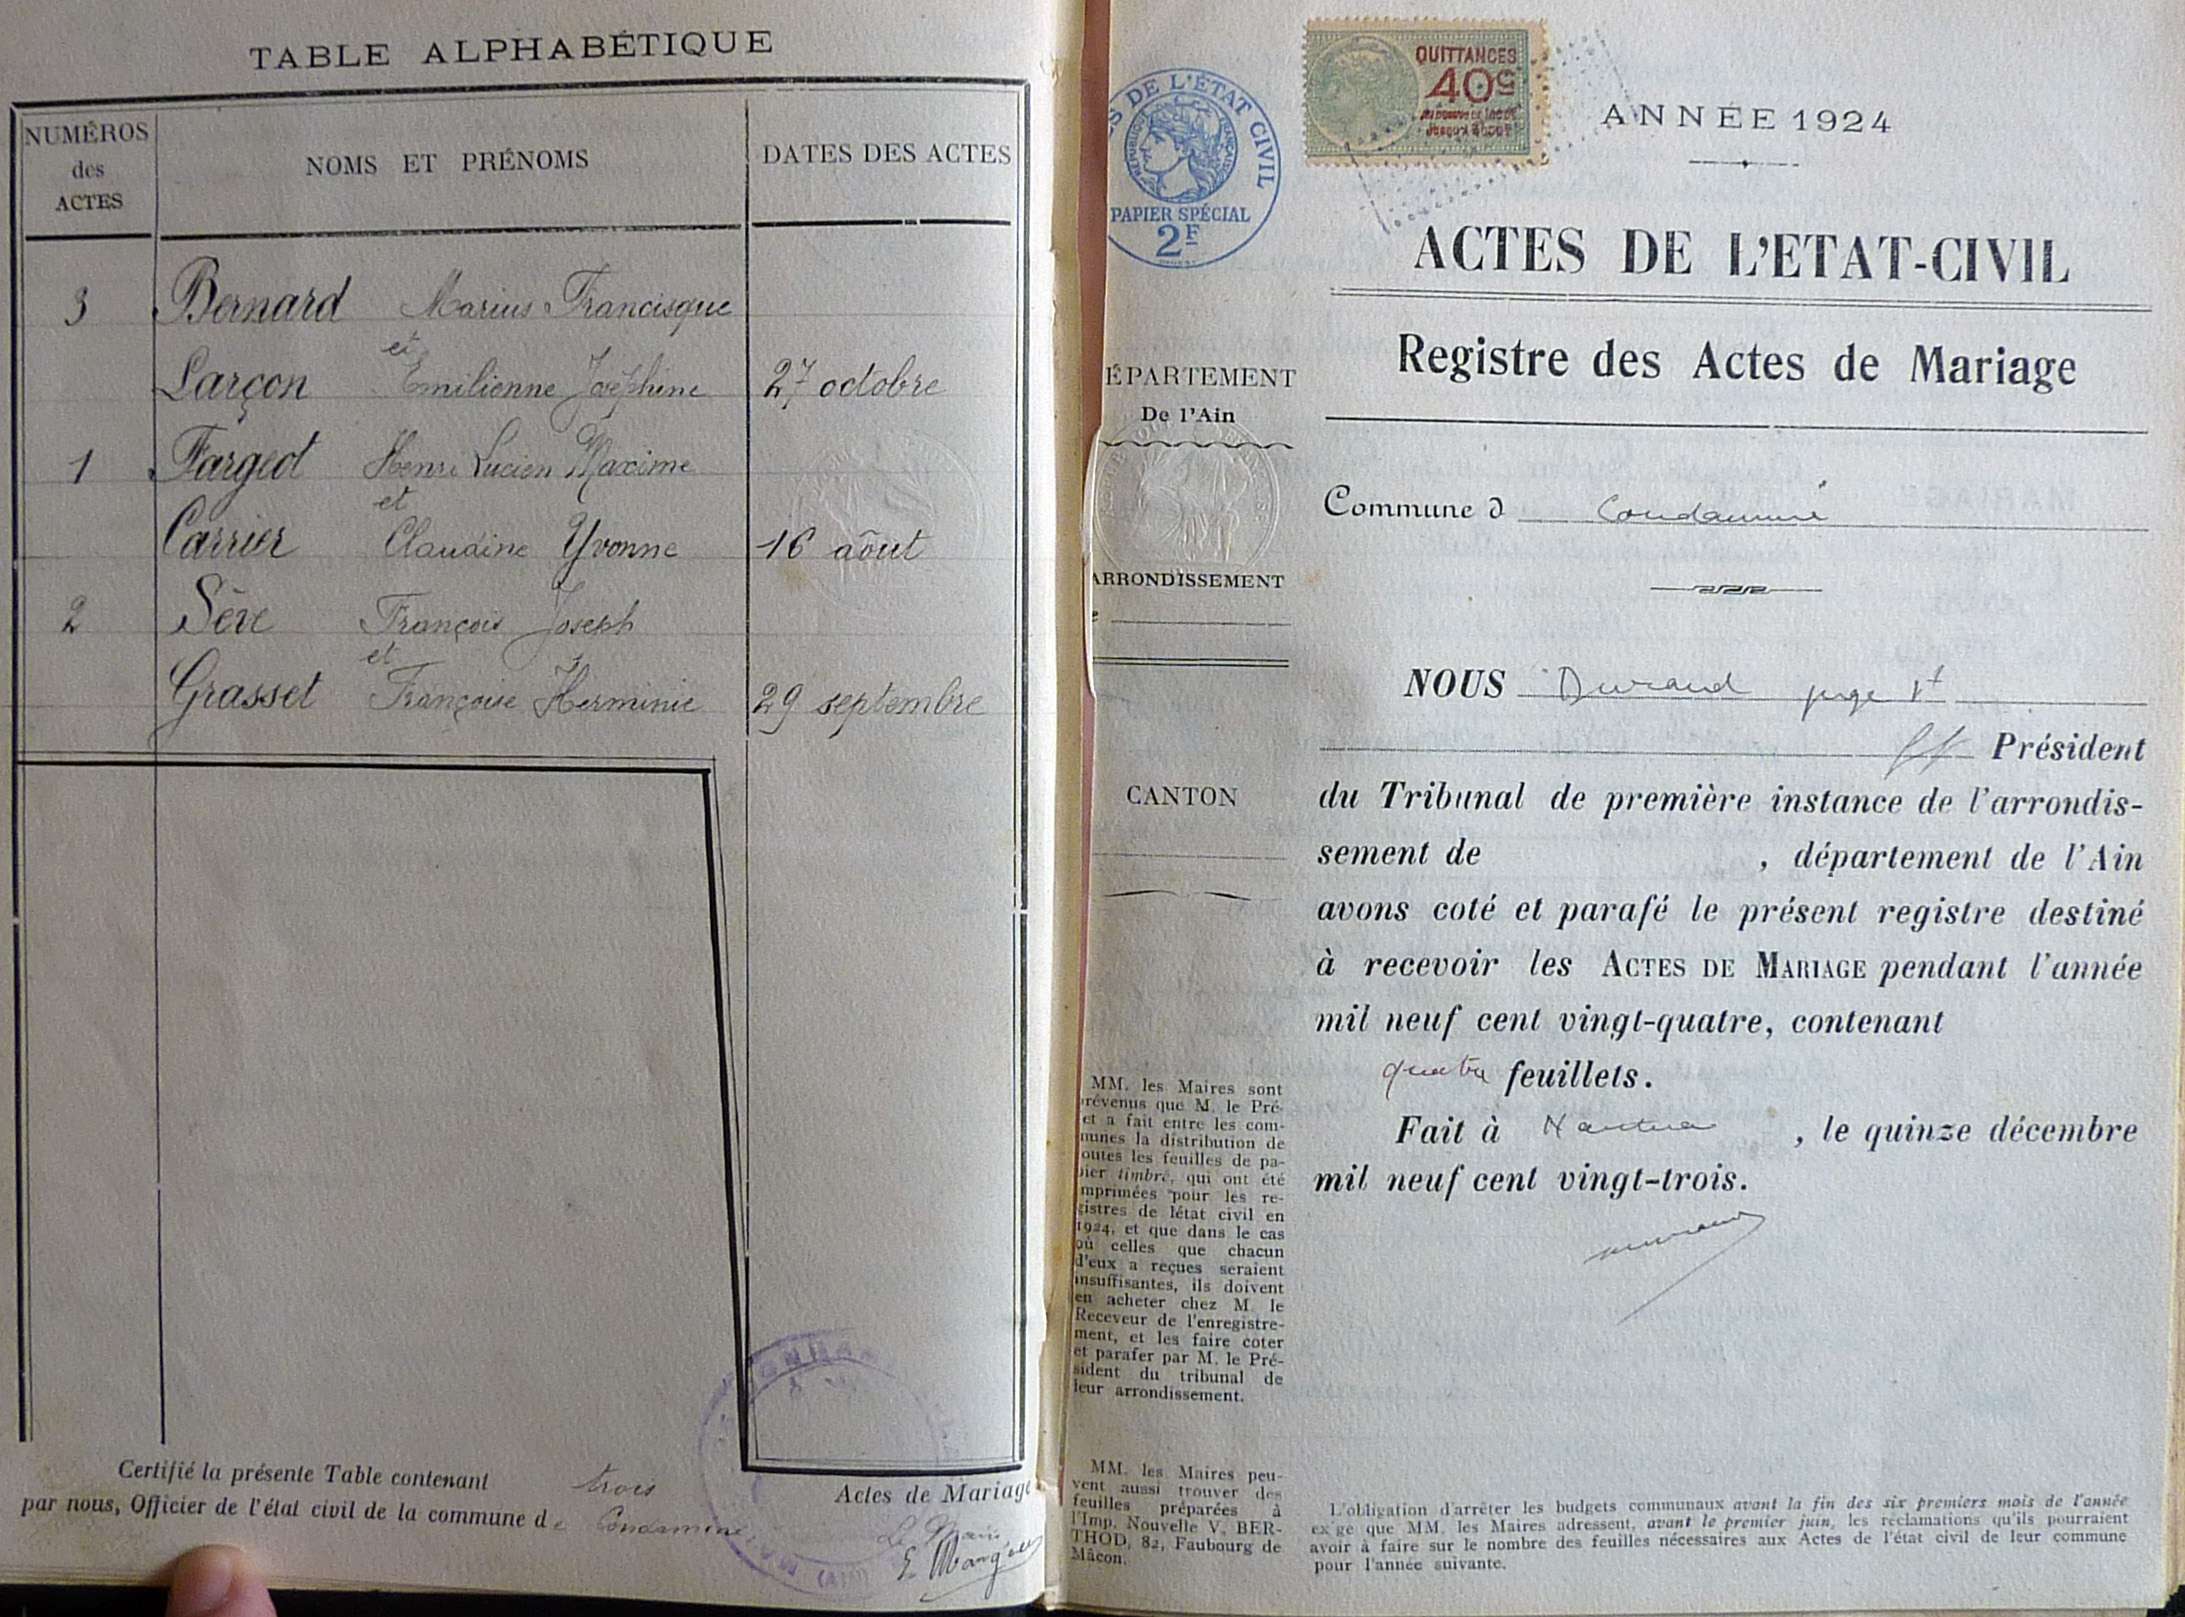 TABLE ALPHABÉTIQUE
NUMÉROS
des
ACTES
NOMS ET PRÉNOMS
DATES DES ACTES
3 Bernard Marius Francisque
et
Larçon Emilienne Joséphine 27 octobre
1 Fargeot Henri Lucien Maxime
et
Carrier Claudine Yvonne 16 août
2 Sève François Joseph
et
Grasset Françoise Herminie 29 septembre
Certifié la présente Table contenant trois Actes de Mariage
par nous, Officier de l'état civil de la commune de Condamine
Le Maire
(AIN)
DE L'ÉTAT CIVIL
RÉPUBLIQUE FRANÇAISE
PAPIER SPÉCIAL
2F
QUITTANCES
40c
ANNÉE 1924
ACTES DE L'ETAT-CIVIL
Registre des Actes de Mariage
ÉPARTEMENT
De l'Ain
Commune d Condamine
ARRONDISSEMENT
e
NOUS Durand juge st
ff Président
CANTON
du Tribunal de première instance de l'arrondis-
sement de , département de l'Ain
avons coté et parafé le présent registre destiné
à recevoir les ACTES DE MARIAGE pendant l'année
mil neuf cent vingt-quatre, contenant
quatre feuillets.
Fait à Nantua , le quinze décembre
mil neuf cent vingt-trois.
MM. les Maires sont
révenus que M. le Pré-
et a fait entre les com-
munes la distribution de
outes les feuilles de pa-
pier timbré, qui ont été
imprimées pour les re-
gistres de létat civil en
1924, et que dans le cas
où celles que chacun
d'eux a reçues seraient
insuffisantes, ils doivent
en acheter chez M. le
Receveur de l'enregistre-
ment, et les faire coter
et parafer par M. le Pré-
sident du tribunal de
leur arrondissement.
MM. les Maires peu-
vent aussi trouver des
feuilles préparées à
l'Imp. Nouvelle V. BER-
THOD, 82, Faubourg de
Mâcon.
L'obligation d'arrêter les budgets communaux avant la fin des six premiers mois de l'année
ex ge que MM. les Maires adressent, avant le premier juin, les réclamations qu'ils pourraient
avoir à faire sur le nombre des feuilles nécessaires aux Actes de l'état civil de leur commune
pour l'année suivante.